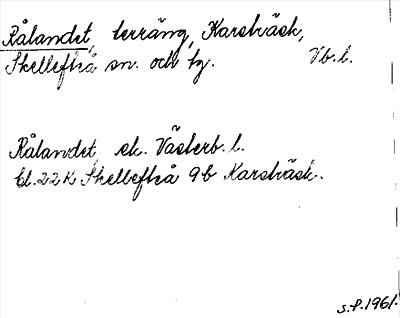 Rålandet, terräng, Karsbäck,
Skellefteå sn. och tg. Vb.l.
Rålandet, ek. Västerb. l.
Bl. 22K Skellefteå 9b Karsbäck.
S.P. 1961.